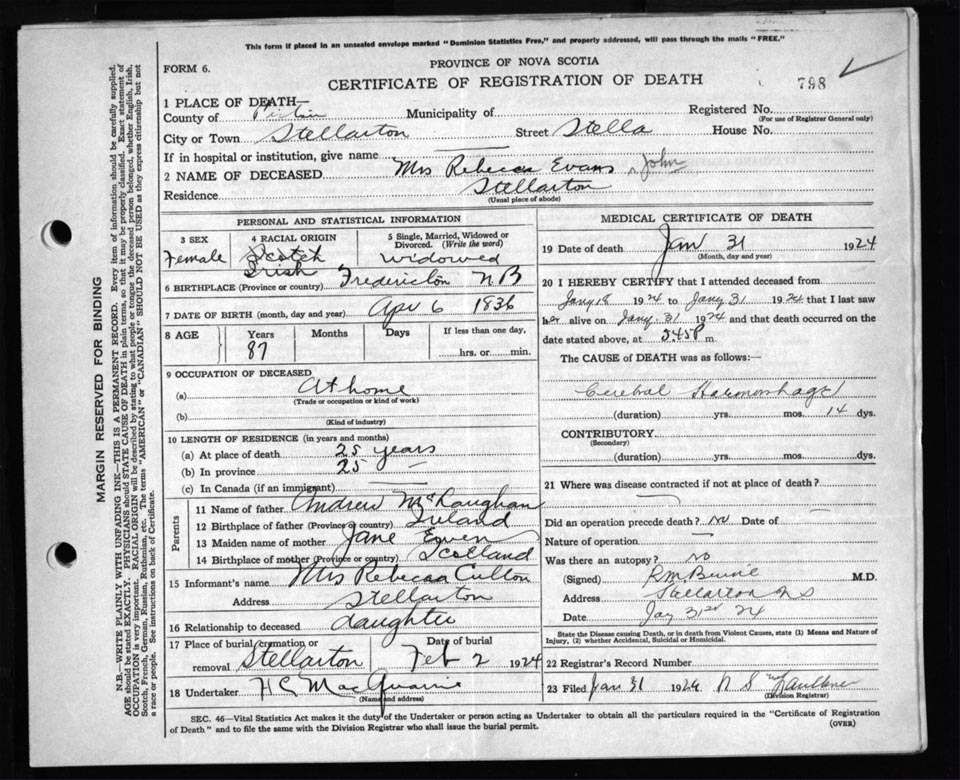 This form if placed in an unsealed envelope marked "Dominion Statistics Free," and properly addressed, will pass through the mails "FREE."
PROVINCE OF NOVA SCOTIA
FORM 6.
CERTIFICATE OF REGISTRATION OF DEATH
798
1 PLACE OF DEATH—
County of Pictou Municipality of Registered No.
(For use of Registrar General only)
City or Town Stellarton Street Stella House No.
If in hospital or institution, give name
2 NAME OF DECEASED Mrs Rebecca Evans John
Residence Stellarton
(Usual place of abode)
PERSONAL AND STATISTICAL INFORMATION
3 SEX 4 RACIAL ORIGIN 5 Single, Married, Widowed or Divorced. (Write the word)
Female Scotch Irish widowed
6 BIRTHPLACE (Province or country) Fredericton N.B
7 DATE OF BIRTH (month, day and year) Apr 6 1836
8 AGE Years Months Days If less than one day.
87 hrs. or min.
9 OCCUPATION OF DECEASED
(a) At home
(Trade or occupation or kind of work)
(b)
(Kind of industry)
10 LENGTH OF RESIDENCE (in years and months)
(a) At place of death 25 years
(b) In province 25 —
(c) In Canada (if an immigrant)
Parents
11 Name of father Andrew
12 Birthplace of father (Province or country) Ireland
13 Maiden name of mother Jane Ewen
14 Birthplace of mother (Province or country) Scotland
15 Informant's name Mrs Rebecca Culton
Address Stellarton
16 Relationship to deceased daughter
17 Place of burial, cremation or removal Stellarton Date of burial Feb 2 1924
18 Undertaker H C MacQuarrie
(Name and address)
MEDICAL CERTIFICATE OF DEATH
19 Date of death Jan 31 1924
(Month, day and year)
20 I HEREBY CERTIFY that I attended deceased from
Jany 18 1924 to Jany 31 1924 that I last saw
her alive on Jany. 31 1924 and that death occurred on the
date stated above, at 545P m.
The CAUSE of DEATH was as follows:—
Cerebral Haemorrhage
(duration) yrs. mos. 14 dys.
CONTRIBUTORY
(Secondary)
(duration) yrs. mos. dys.
21 Where was disease contracted if not at place of death?
Did an operation precede death? No Date of —
Nature of operation —
Was there an autopsy? No
(Signed) M.D.
Address Stellarton N S
Date Jany 31st 24
State the Disease causing Death, or in death from Violent Causes, state (1) Means and Nature of
Injury, (2) whether Accidental, Suicidal or Homicidal.
22 Registrar's Record Number
23 Filed Jan 31 1924 Faulkner
(Division Registrar)
SEC. 46—Vital Statistics Act makes it the duty of the Undertaker or person acting as Undertaker to obtain all the particulars required in the "Certificate of Registration
of Death" and to file the same with the Division Registrar who shall issue the burial permit.
(OVER)
MARGIN RESERVED FOR BINDING
N.B.—WRITE PLAINLY, WITH UNFADING INK—THIS IS A PERMANENT RECORD. Every item of information should be carefully supplied.
AGE should be stated EXACTLY. PHYSICIANS should STATE CAUSE OF DEATH in plain terms, so that it may be properly classified. Exact statement of
OCCUPATION is very important. RACIAL ORIGIN will be described by stating to what people or tongue the deceased person belonged, whether English, Irish,
Scotch, French, German, Russian, Ruthenian, etc. The terms "AMERICAN" or "CANADIAN" SHOULD NOT BE USED as they express citizenship but not
a race or people. See instructions on back of Certificate.